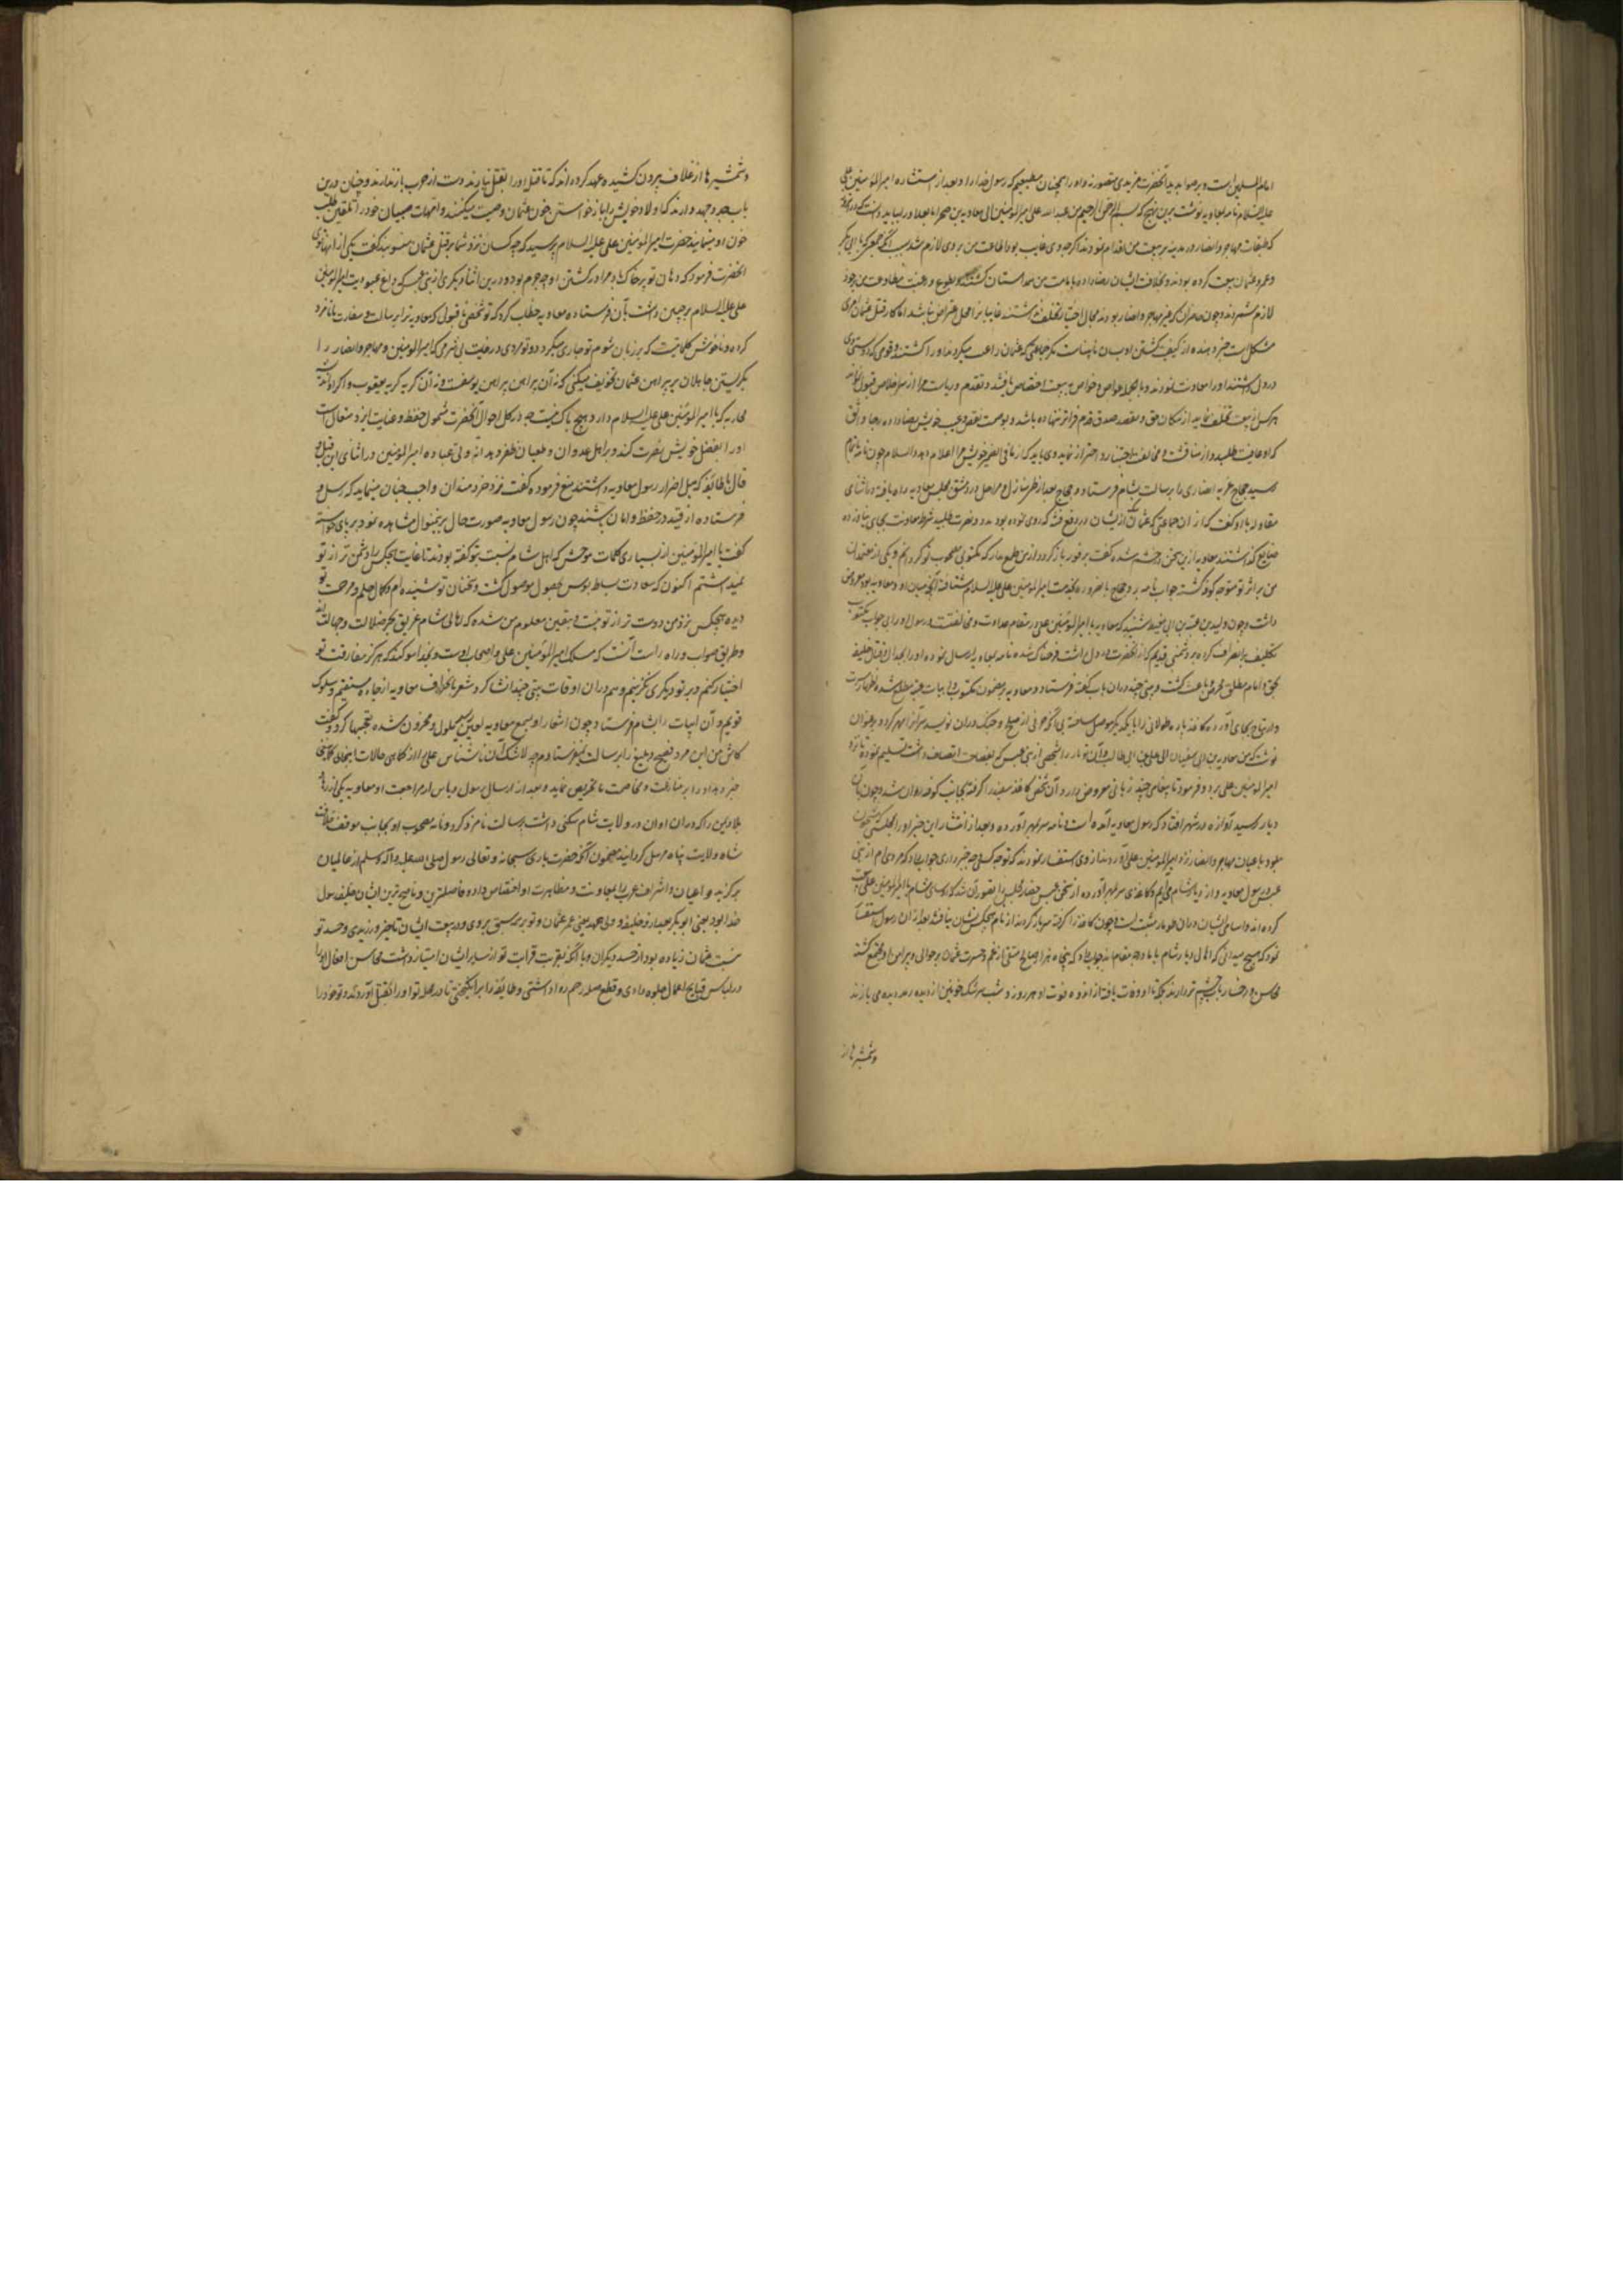 امام المسلمین است و بر صوابدید آنحضرت مزیدی متصور نه و او را همچنان مطیعیم که رسول خدا را و بعد از استشاره امیرالمؤمنین علی
علیه السلام نامه بمعاویه نوشت برین نهج که بسم الله الرحمن الرحیم من عبدالله علی امیرالمؤمنین الی معاویه بن صخر اما بعد
که طبقات مهاجر و انصار در مدینه بر بیعت من اقدام نمودند اگرچه وی غایب بود اطاعت من بر وی لازم شد بسبب آنکه جمعی که با ابی بکر
و عمر و عثمان بیعت کرده بودند و بخلافت ایشان رضا داده بامامت من همداستان گشتند و بطوع و رغبت مطاوعت من بر خود
لازم شمردند و چون حاضران که خیر مهاجر و انصار بودند مجال اختیار تخلف نداشتند غایبا نرا محل اعتراض نباشد اما کار قتل عثمان امری
مشکل است خبر دهنده از کیفیت کشتن او بسان نابیناست مگر جماعتی که عثمان را عیب میکردند او را کشتند و قومی که دوستی وی
در دل داشتند او را معاونت ننمودند و با عوام و خواص بیعت اختصاص یافتند و تقدم و ریاست مرا از سر اخلاص قبول
هر کس از بیعت تخلف نماید از مکان حق و مقعد صدق قدم فراتر نهاده باشد و بوصمت نقص و عیب خویش رضا داده رجا واثق
که او عافیت طلبد و از مناقشت و مخالفت اجتناب و احتراز نماید و می باید که از ما فی الضمیر خویش مرا اعلام دهد والسلام چون نامه باتمام
رسید حجاج غزیه انصاری را برسالت بشام فرستاد و حجاج بعد از طی منازل و مراحل در دمشق بمجلس معاویه راه یافته در اثنای
مقاوله با او گفت که از آن جماعتی که عثمان از ایشان در دفع فتنه که روی نموده بود مدد و نصرت طلبید شرط معاونت بجای نیاورده
ضایع گذاشتند معاویه از این سخن در خشم شده گفت بر فور باز گرد و از من طمع مدار که مکتوبی مصحوب تو گردانم و یکی از معتمدان
من بر اثر تو متوجه کوفه گشته جواب نامه برد و حجاج بالضروره بخدمت امیرالمؤمنین علی علیه السلام شتافته آنچه میان او و معاویه بود معروض
داشت و چون ولید بن عقبه بن ابی معیط شنید که معاویه با امیرالمؤمنین علی در مقام عداوت و مخالفتست و رسول او را بی جواب مکتوب
تکلیف بر انصراف کرده بر دشمنی قدیم که از آنحضرت در دل داشت فرحناک شده نامه بمعاویه ارسال نموده او را بجدال و قتال خلیفه
بحق و امام مطلق تحریض باعث گشت و بیتی چند در آن باب گفته فرستاد و معاویه بر مضمون مکتوب و ابیات عقبه مطلع شده
و ارتیاح بجای آورده کاغذ پاره طولانی را با یکدیگر موصل ساخته بی آنکه حرفی از صلح و جنگ در آن نویسد سر آنرا مهر کرد و بر عنوان
نوشت که من معاویه بن ابی سفیان الی علی بن ابی طالب و آن طومار را بشخصی از بنی عبس که بفصاحت اتصاف داشت تسلیم نموده تا نزد
امیرالمؤمنین علی برد و فرمود تا پیغامی چند زبانی معروض دارد و آن شخص کاغذ سفید را گرفته بجانب کوفه روان شد و چون بآن
دیار رسید آوازه در شهر افتاد که رسول معاویه آمده است و نامه سر بمهر آورده و بعد از انتشار این خبر او را بمجلسی که مشحون
بود باعیان مهاجر و انصار نزد امیرالمؤمنین علی آوردند از وی استفسار نمودند که تو چه کسی و چه خبر داری جواب داد که مردی ام از بنی
عبس رسول معاویه و از دیار شام می آیم و کاغذی سر بمهر آورده از سخن عبسی حضار مجلس را تصور آن شد که رؤسای شام با امیرالمؤمنین علی بیعت
کرده اند و اسامی ایشان در آن طومار مثبت است و چون کاغذ را گرفته سر باز کردند از نام هیچکس نشان نیافتند بعد از آن رسول استفسار
نمود که هیچ میدانی که اهالی دیار شام با ما در چه مقام اند جواب داد که پنجاه هزار مبارز از غم و حسرت عثمان بر حوالی پیراهن او مجتمع گشته
محاسن و رخسار بآب چشم تر دارند و تا او وفات یافته از اندوه فوت او هر روز و شب سرشک خونین از دیده رمد دیده می بارند
و شمشیرها از
و شمشیرها از غلاف بیرون کشیده عهد کرده اند که تا قتله او را بقتل نیارند دست از حرب باز ندارند و چنان درین
باب جد و جهد دارند که اولاد خویش را بباز خواستن خون عثمان وصیت میکنند و امهات صبیان خود را تلقین طلب
خون او مینمایند حضرت امیرالمؤمنین علی علیه السلام پرسید که چه کسان نزد شما بر قتل عثمان منسوبند گفت یکی از آنها توی
آنحضرت فرمود که دهان تو پر خاک باد مرا در کشتن او چه جرم بود و در این اثنا دیگری از بنی عبس که داغ عبودیت امیرالمؤمنین
علی علیه السلام بر جبین داشت بآن فرستاده معاویه خطاب کرد که تو شخصی نا قبول که معاویه ترا برسالت و سفارت نامزد
کرده و ناخوش کلماتیست که بر زبان شوم تو جاری میگردد و تو مردی در غایت بی شرمی که امیرالمؤمنین و مهاجر و انصار را
بگریستن جاهلان بر پیراهن عثمان تخویف میکنی که نه آن پیراهن پیراهن یوسفست و نه آن گریه گریه یعقوب و اگر
محاربه که با امیرالمؤمنین علی علیه السلام دارد هیچ باک نیست چه در کل احوال آنحضرت شمول حفظ و عنایت ایزد متعال است
او را بفضل خویش نصرت کند و بر اهل عدوان و طغیان ظفر دهد انه ولی عباده امیرالمؤمنین در اثنای این قیل و
قال با طائفه که میل اضرار رسول معاویه داشتند منع فرموده گفت نزد خردمندان واجب چنان مینماید که رسل و
فرستاده از قید در حفظ و امان باشند چون رسول معاویه صورت حال برین منوال مشاهده نمود بر پای خواسته
گفت یا امیرالمؤمنین از بسیاری کلمات موحش که اهل شام نسبت بتو گفته بودند تا غایت هیچکس را دشمن تر از تو
نمیداشتم اکنون که سعادت بساط بوس بحصول موصول گشت و سخنان تو شنیده ام و کمال حلم و مرحمت تو
دیده هیچکس نزد من دوست تر از تو نیست و بیقین معلوم من شده که اهالی شام غریق بحر ضلالت و جهالت اند
و طریق صواب و راه راست آنست که مسلک امیرالمؤمنین علی و اصحاب اوست و بخدا سوگند که هرگز مفارقت تو
اختیار نکنم و بر تو دیگری نگزینم و هم در آن اوقات بیتی چند انشا کرد مشعر بانحراف معاویه از جاده مستقیم و سلوک
قویم و آن ابیات را بشام فرستاد چون اشعار او بسمع معاویه لعین رسید ملول و محزون شده تعجبها کرد و گفت
کاش من این مرد فصیح و بلیغ را برسالت نمیفرستادم چه لا شک آن ناشناس علی را از کماهی حالات اینجا آگاهی
خبر دهد و او را بر منازعت و مخاصمت ما تحریص نماید و بعد از ارسال رسول و یاس از مراجعت او معاویه یکی از زهاد
بلاد یمن را که در آن اوان در ولایت شام سکنی داشت برسالت نامزد کرد و نامه مصحوب او بجانب موقف خلافت
شاه ولایت پناه مرسل گردانید مضمون آنکه حضرت باری سبحانه و تعالی رسول صلی الله علیه و آله وسلم از عالمیان
برگزید و اعیان و اشراف عرب را بمعاونت و مظاهرت او اختصاص داده فاضلترین و ناصح ترین ایشان خلیفه رسول
خدا بود یعنی ابوبکر بعد از او خلیفه و ولی عهد یعنی عمر عثمان و تو بر هر سه بغی بروی و در بیعت ایشان تاخیر ورزیدی و حسد تو
نسبت عثمان زیاده بود از حسد دیگران و با آنکه بقربت قرابت تو از سایر ایشان امتیاز داشت محاسن افعال او را
در لباس قبایح اعمال جلوه دادی و قطع صله رحم روا داشتی و طایفه را برانگیختی تا در محله تو او را بقتل آوردند و تو خود را